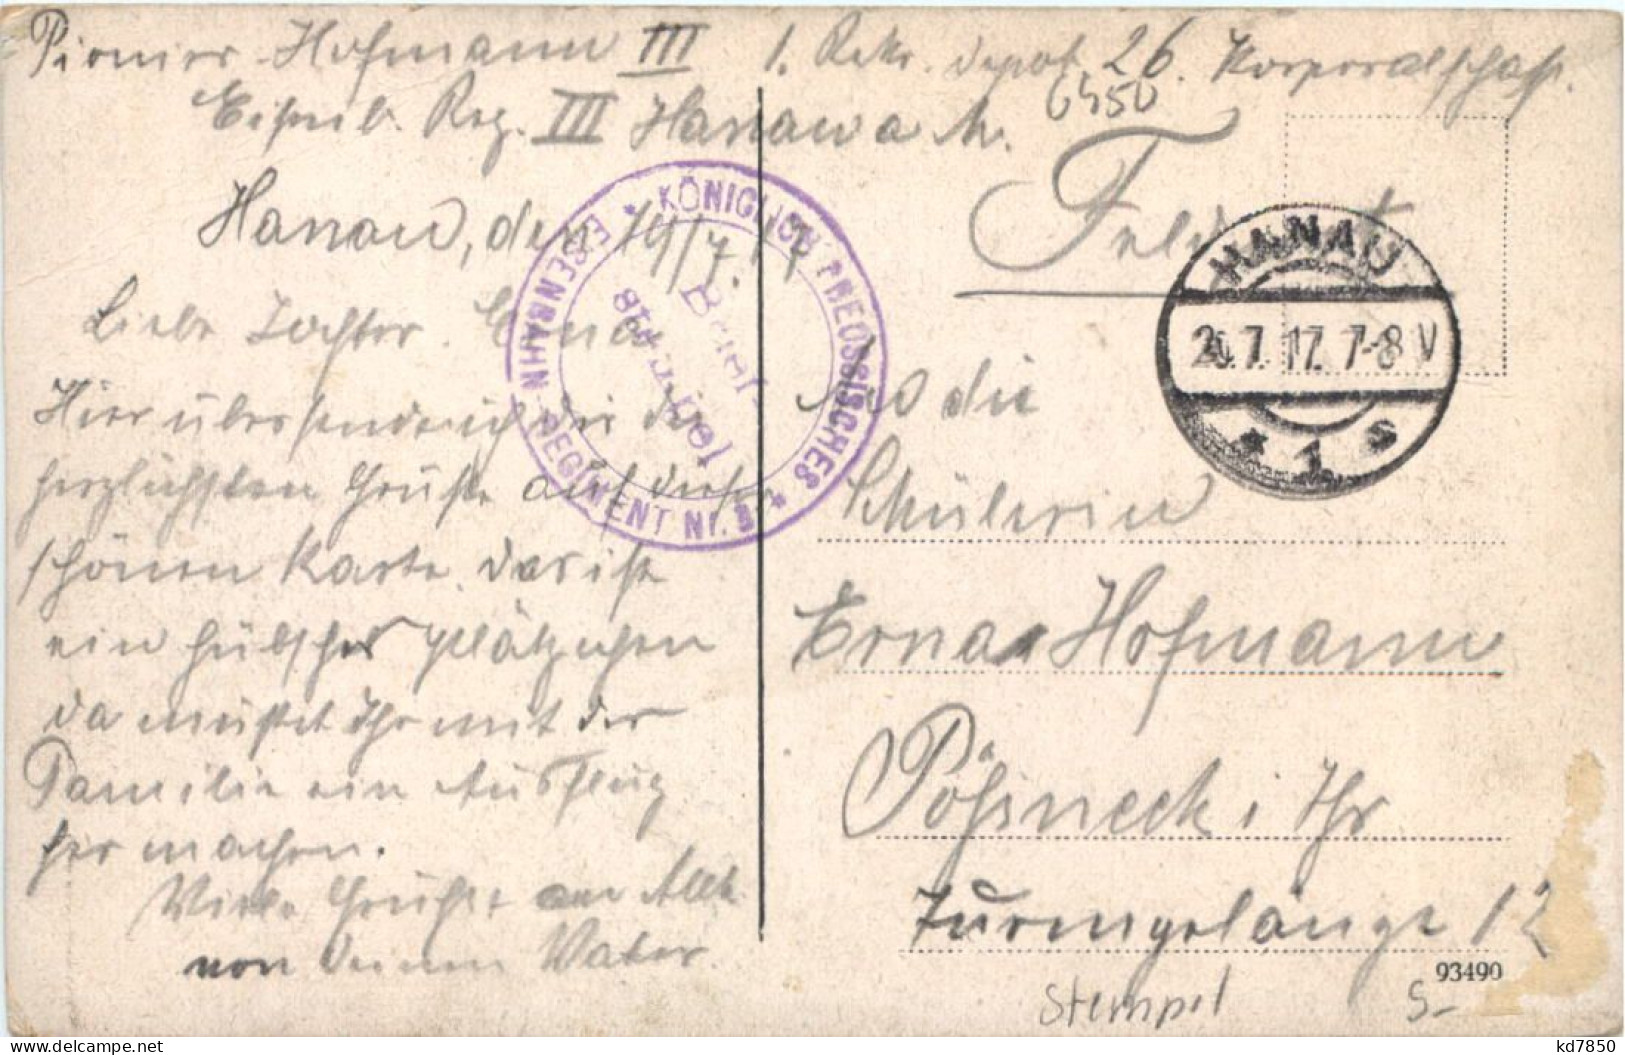 Pionier Hofmann III 1. Rekr. Depot 26. Korporalschaft.
Eisenb. Reg. III Hanau a M.
6450
Hanau, den 19/7.17
Liebe Tochter Erna
Hier übersende ich dir die
herzlichsten Grüße auf dieser
schönen Karte. Das ist
ein hübsches Plätzchen
da müßtet Ihr mit der
Familie ein Ausflug
her machen.
Viele Grüße an Alle
von Deinem Vater.
KÖNIGLICH PREUSSISCHES
EISENBAHN-REGIMENT Nr. 3
Brief-
stempel
Feldpost
HANAU
20.7.17. 7-8V
* 1 s
An die
Schülerin
Erna Hofmann
Pößneck i Thr
Turmgelänge 12
93490
Stempel
5-
kd7850